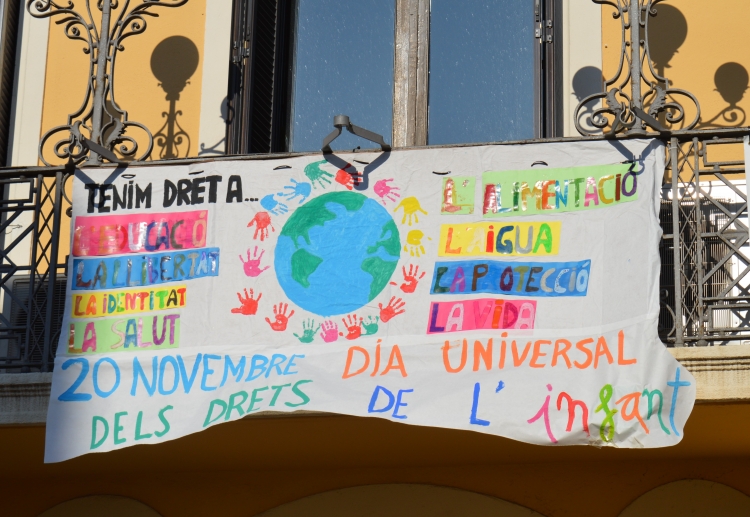 TENIM DRET A...
L'EDUCACIÓ
LA LLIBERTAT
LA IDENTITAT
LA SALUT
L'ALIMENTACIÓ
L'AIGUA
LA PROTECCIÓ
LA VIDA
20 NOVEMBRE DIA UNIVERSAL
DELS DRETS DE L'infant